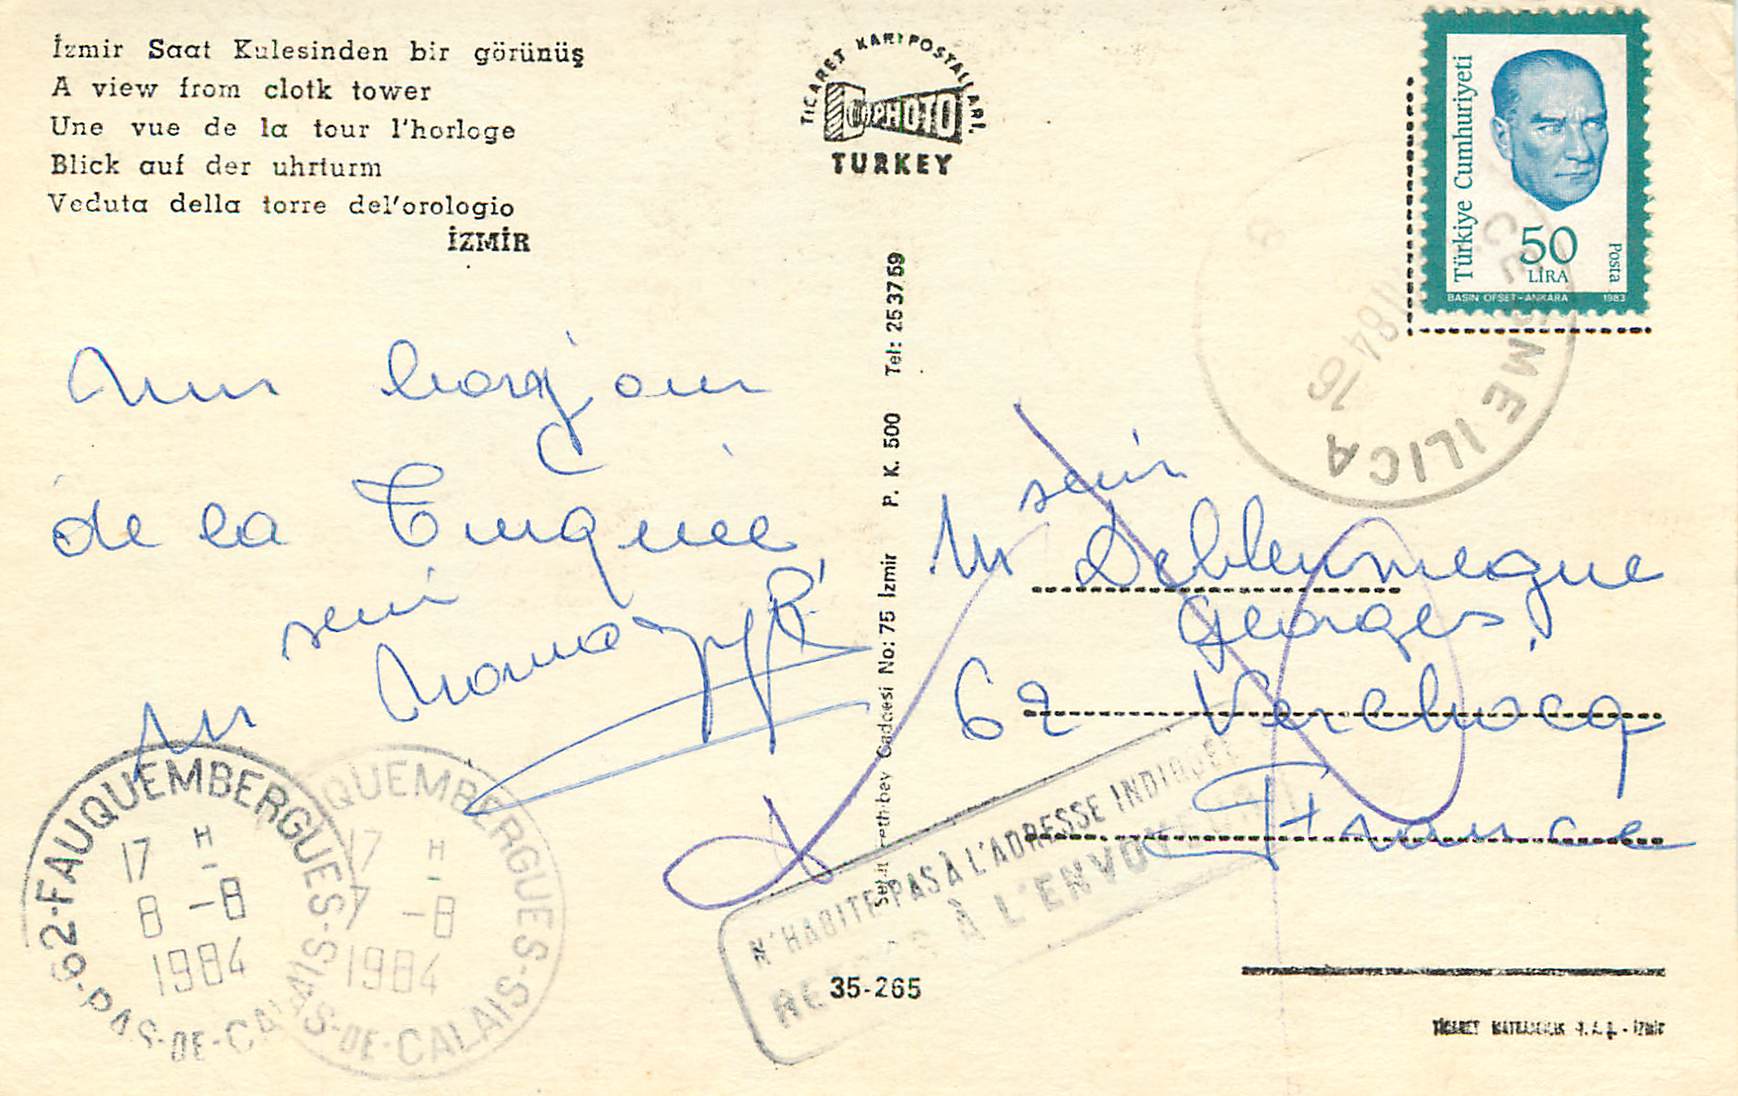 İzmir Saat Kulesinden bir görünüş
A view from clotk tower
Une vue de la tour l'horloge
Blick auf der uhrturm
Veduta della torre del'orologio
İZMİR
TİCARET KARTPOSTALLARI.
PHOTO
TURKEY
Türkiye Cumhuriyeti
50
LİRA
Posta
BASIN OFSET-ANKARA 1983
ILICA
bonjour
de la Turquie
M
Georges,
62 Verchocq
France
Caddesi No: 75 İzmir P. K. 500 Tel: 253759
62-FAUQUEMBERGUES
PAS-DE-CALAIS
17 H
8 -8
1984
FAUQUEMBERGUES
PAS-DE-CALAIS
17 H
7 -8
1984
N'HABITE PAS À L'ADRESSE INDIQUÉE
À L'ENVOYEUR
35-265
TİCARET MATBAACILIK T.A.Ş. - İZMİR